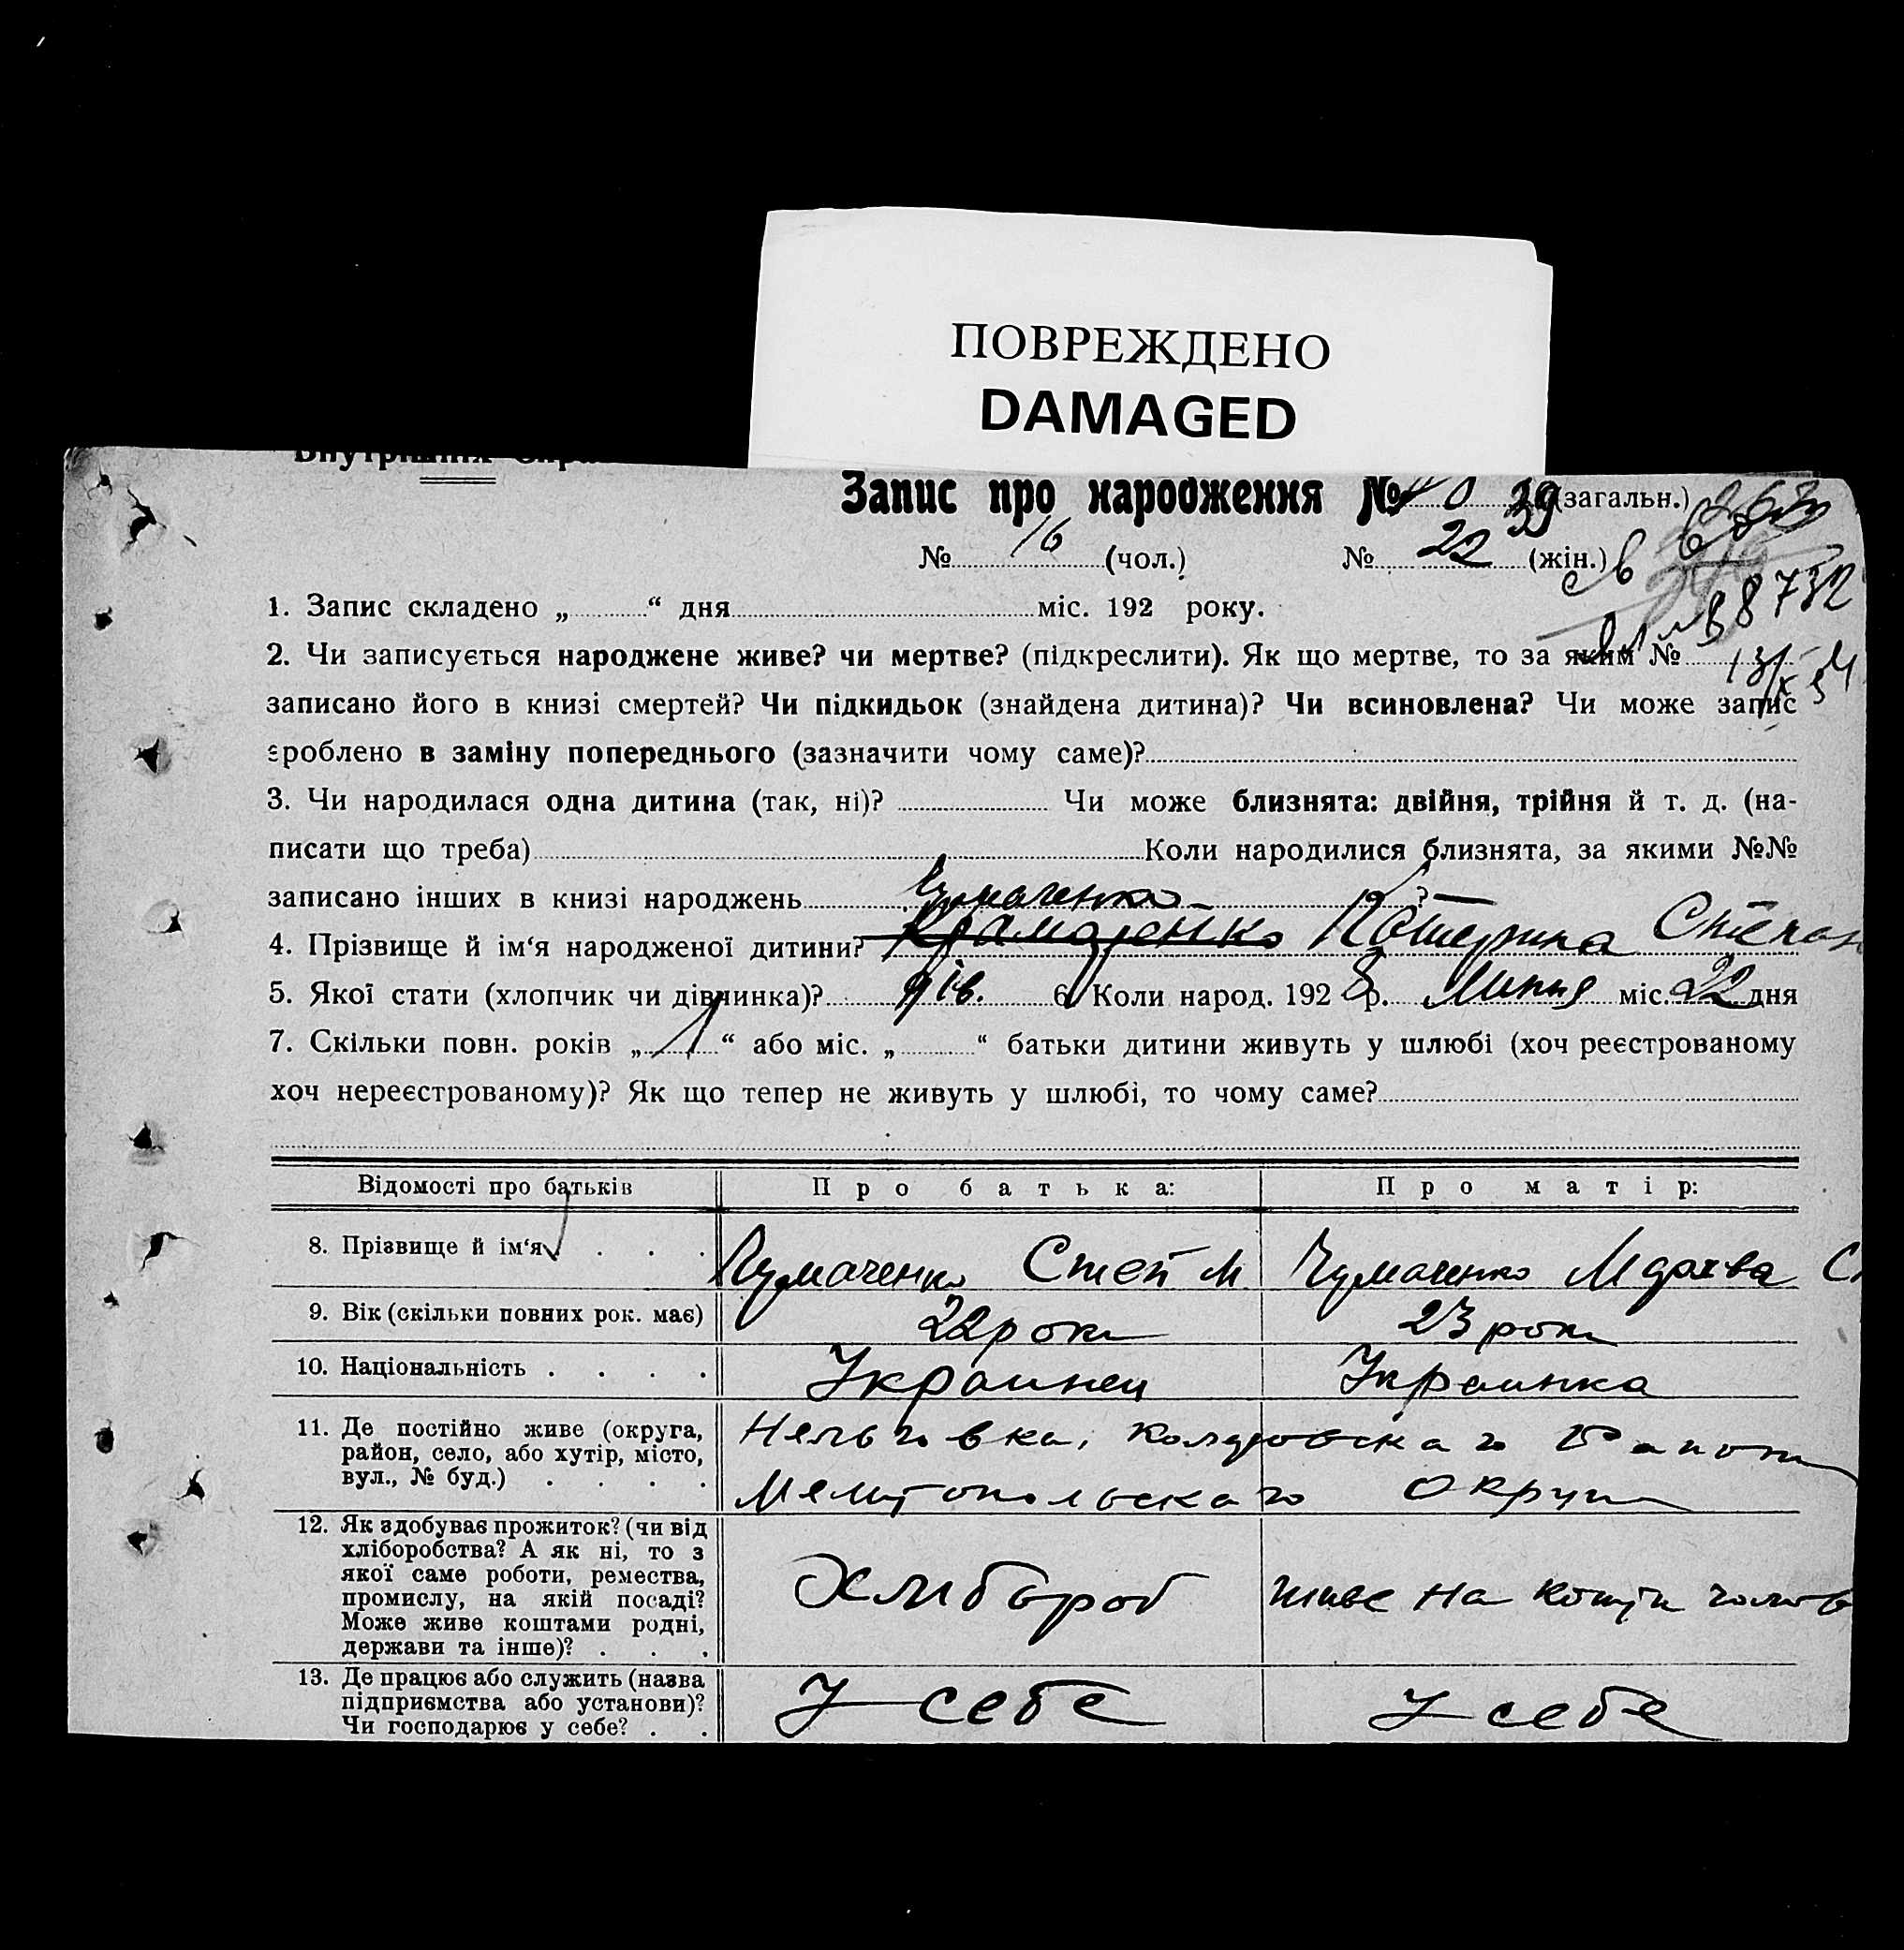 ПОВРЕЖДЕНО
DAMAGED
Запис про народження № 39 (загальн.)
№ 16 (чол.) № 22 (жін.)
1. Запис складено „ “ дня міс. 192 року.
2. Чи записується народжене живе? чи мертве? (підкреслити). Як що мертве, то за яким №
записано його в книзі смертей? Чи підкидьок (знайдена дитина)? Чи всиновлена? Чи може запис
зроблено в заміну попереднього (зазначити чому саме)?
3. Чи народилася одна дитина (так, ні)? Чи може близнята: двійня, трійня й т. д. (на-
писати що треба) Коли народилися близнята, за якими №№
записано інших в книзі народжень ?
Чумаченко
4. Прізвище й ім‘я народженої дитини? Крамаренко Катерина Степан
5. Якої стати (хлопчик чи дівчинка)? дів. 6. Коли народ. 1928 р. Липня міс. 22 дня
7. Скільки повн. років „ 1 “ або міс. „ “ батьки дитини живуть у шлюбі (хоч реєстрованому
хоч нереєстрованому)? Як що тепер не живуть у шлюбі, то чому саме?
Відомості про батьків Про батька: Про матір:
8. Прізвище й ім‘я Чумаченко Степ М Чумаченко
9. Вік (скільки повних рок. має) 22 роки 23 роки
10. Національність Украинец Украинка
11. Де постійно живе (округа,
район, село, або хутір, місто,
вул., № буд.)
Мелитопольскаго Округи
12. Як здобуває прожиток? (чи від
хліборобства? А як ні, то з
якої саме роботи, ремества,
промислу, на якій посаді?
Може живе коштами родні,
держави та інше)?
Хлибороб живе на кошти чолов
13. Де працює або служить (назва
підприємства або установи)?
Чи господарює у себе?
У себе У себе